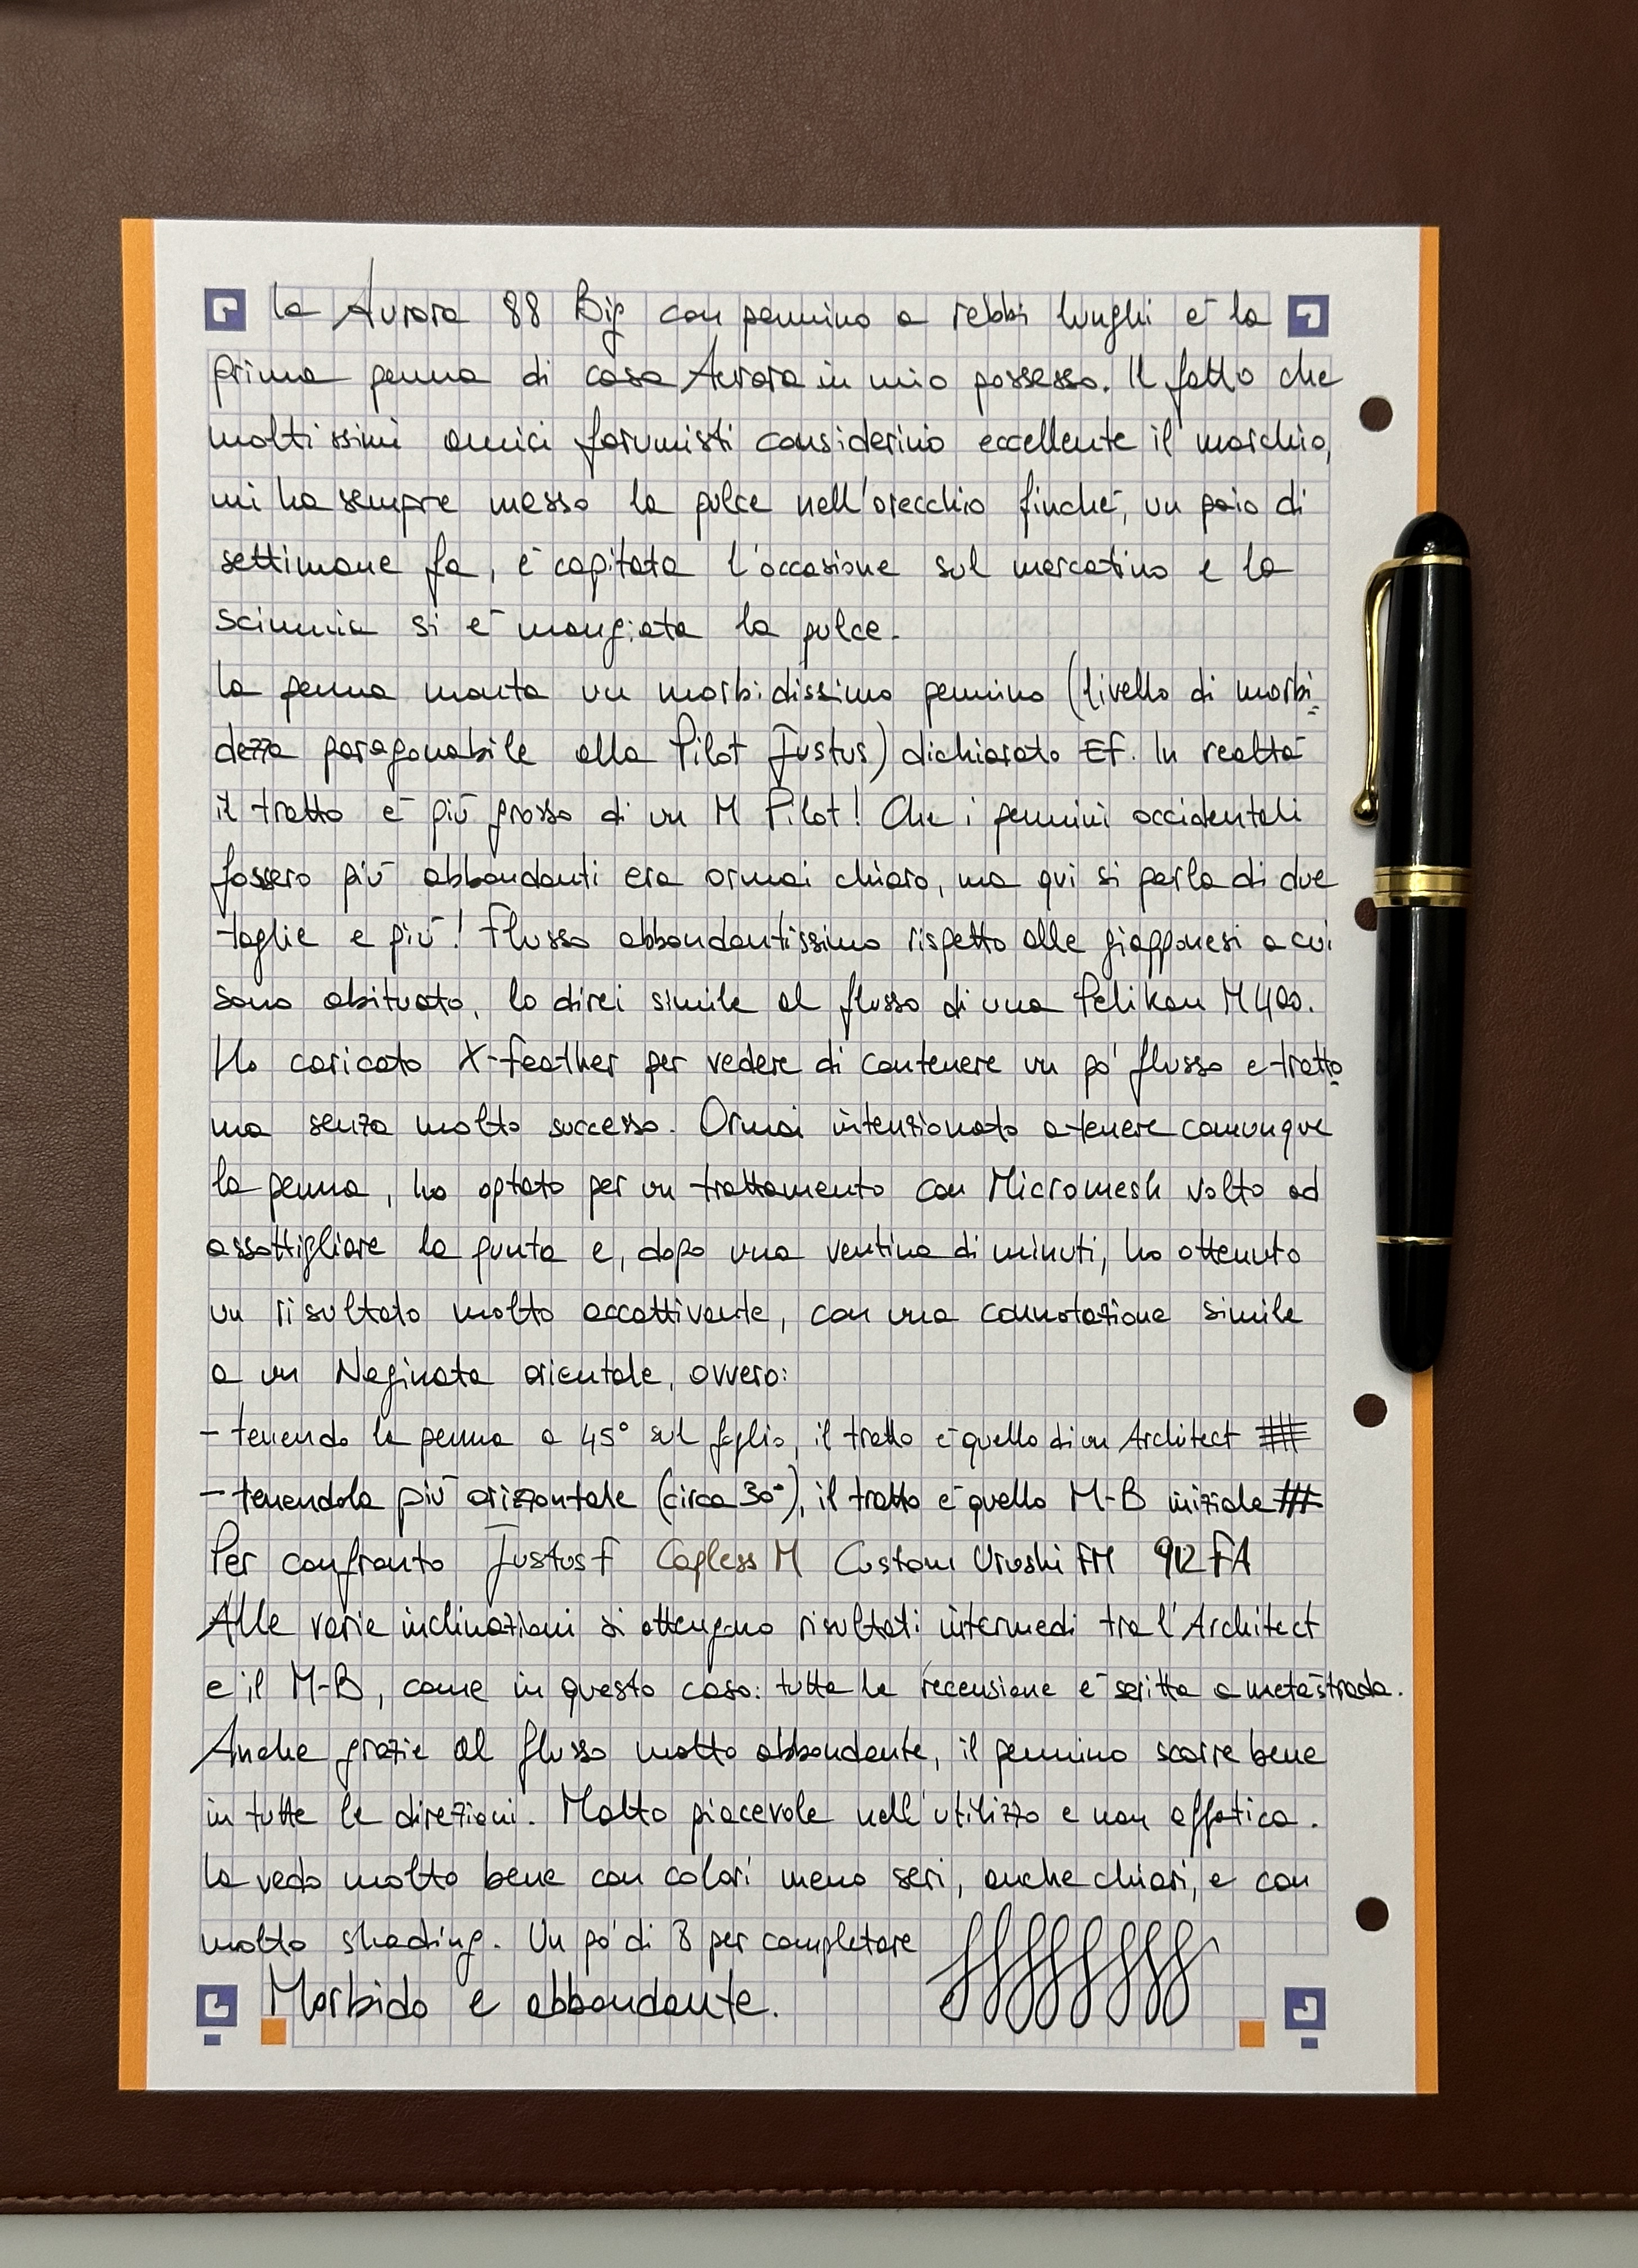 La Aurora 88 Big con pennino a rebbi lunghi è la
prima penna di casa Aurora in mio possesso. Il fatto che
moltissimi amici forumisti considerino eccellente il marchio,
mi ha sempre messo la pulce nell'orecchio finché, un paio di
settimane fa, è capitata l'occasione sul mercatino e la
scimmia si è mangiata la pulce.
La penna monta un morbidissimo pennino (livello di morbi=
dezza paragonabile alla Pilot Justus) dichiarato EF. In realtà
il tratto è più grosso di un M Pilot! Che i pennini occidentali
fossero più abbondanti era ormai chiaro, ma qui si parla di due
taglie e più! Flusso abbondantissimo rispetto alle giapponesi a cui
sono abituato, lo direi simile al flusso di una Pelikan M400.
Ho caricato X-feather per vedere di contenere un po' flusso e tratto
ma senza molto successo. Ormai intenzionato a tenere comunque
la penna, ho optato per un trattamento con Micromesh volto ad
assottigliare la punta e, dopo una ventina di minuti, ho ottenuto
un risultato molto accattivante, con una connotazione simile
a un Naginata orientale, ovvero:
- tenendo la penna a 45° sul foglio, il tratto è quello di un Architect
- tenendola più orizzontale (circa 30°), il tratto è quello M-B iniziale
Per confronto Justus F Capless M Custom Urushi FM 912 FA
Alle varie inclinazioni si ottengono risultati intermedi tra l'Architect
e il M-B, come in questo caso: tutta la recensione è scritta a metà strada.
Anche grazie al flusso molto abbondante, il pennino scorre bene
in tutte le direzioni. Molto piacevole nell'utilizzo e non affatica.
La vedo molto bene con colori meno seri, anche chiari, e con
molto shading. Un po' di 8 per completare
Morbido e abbondante.